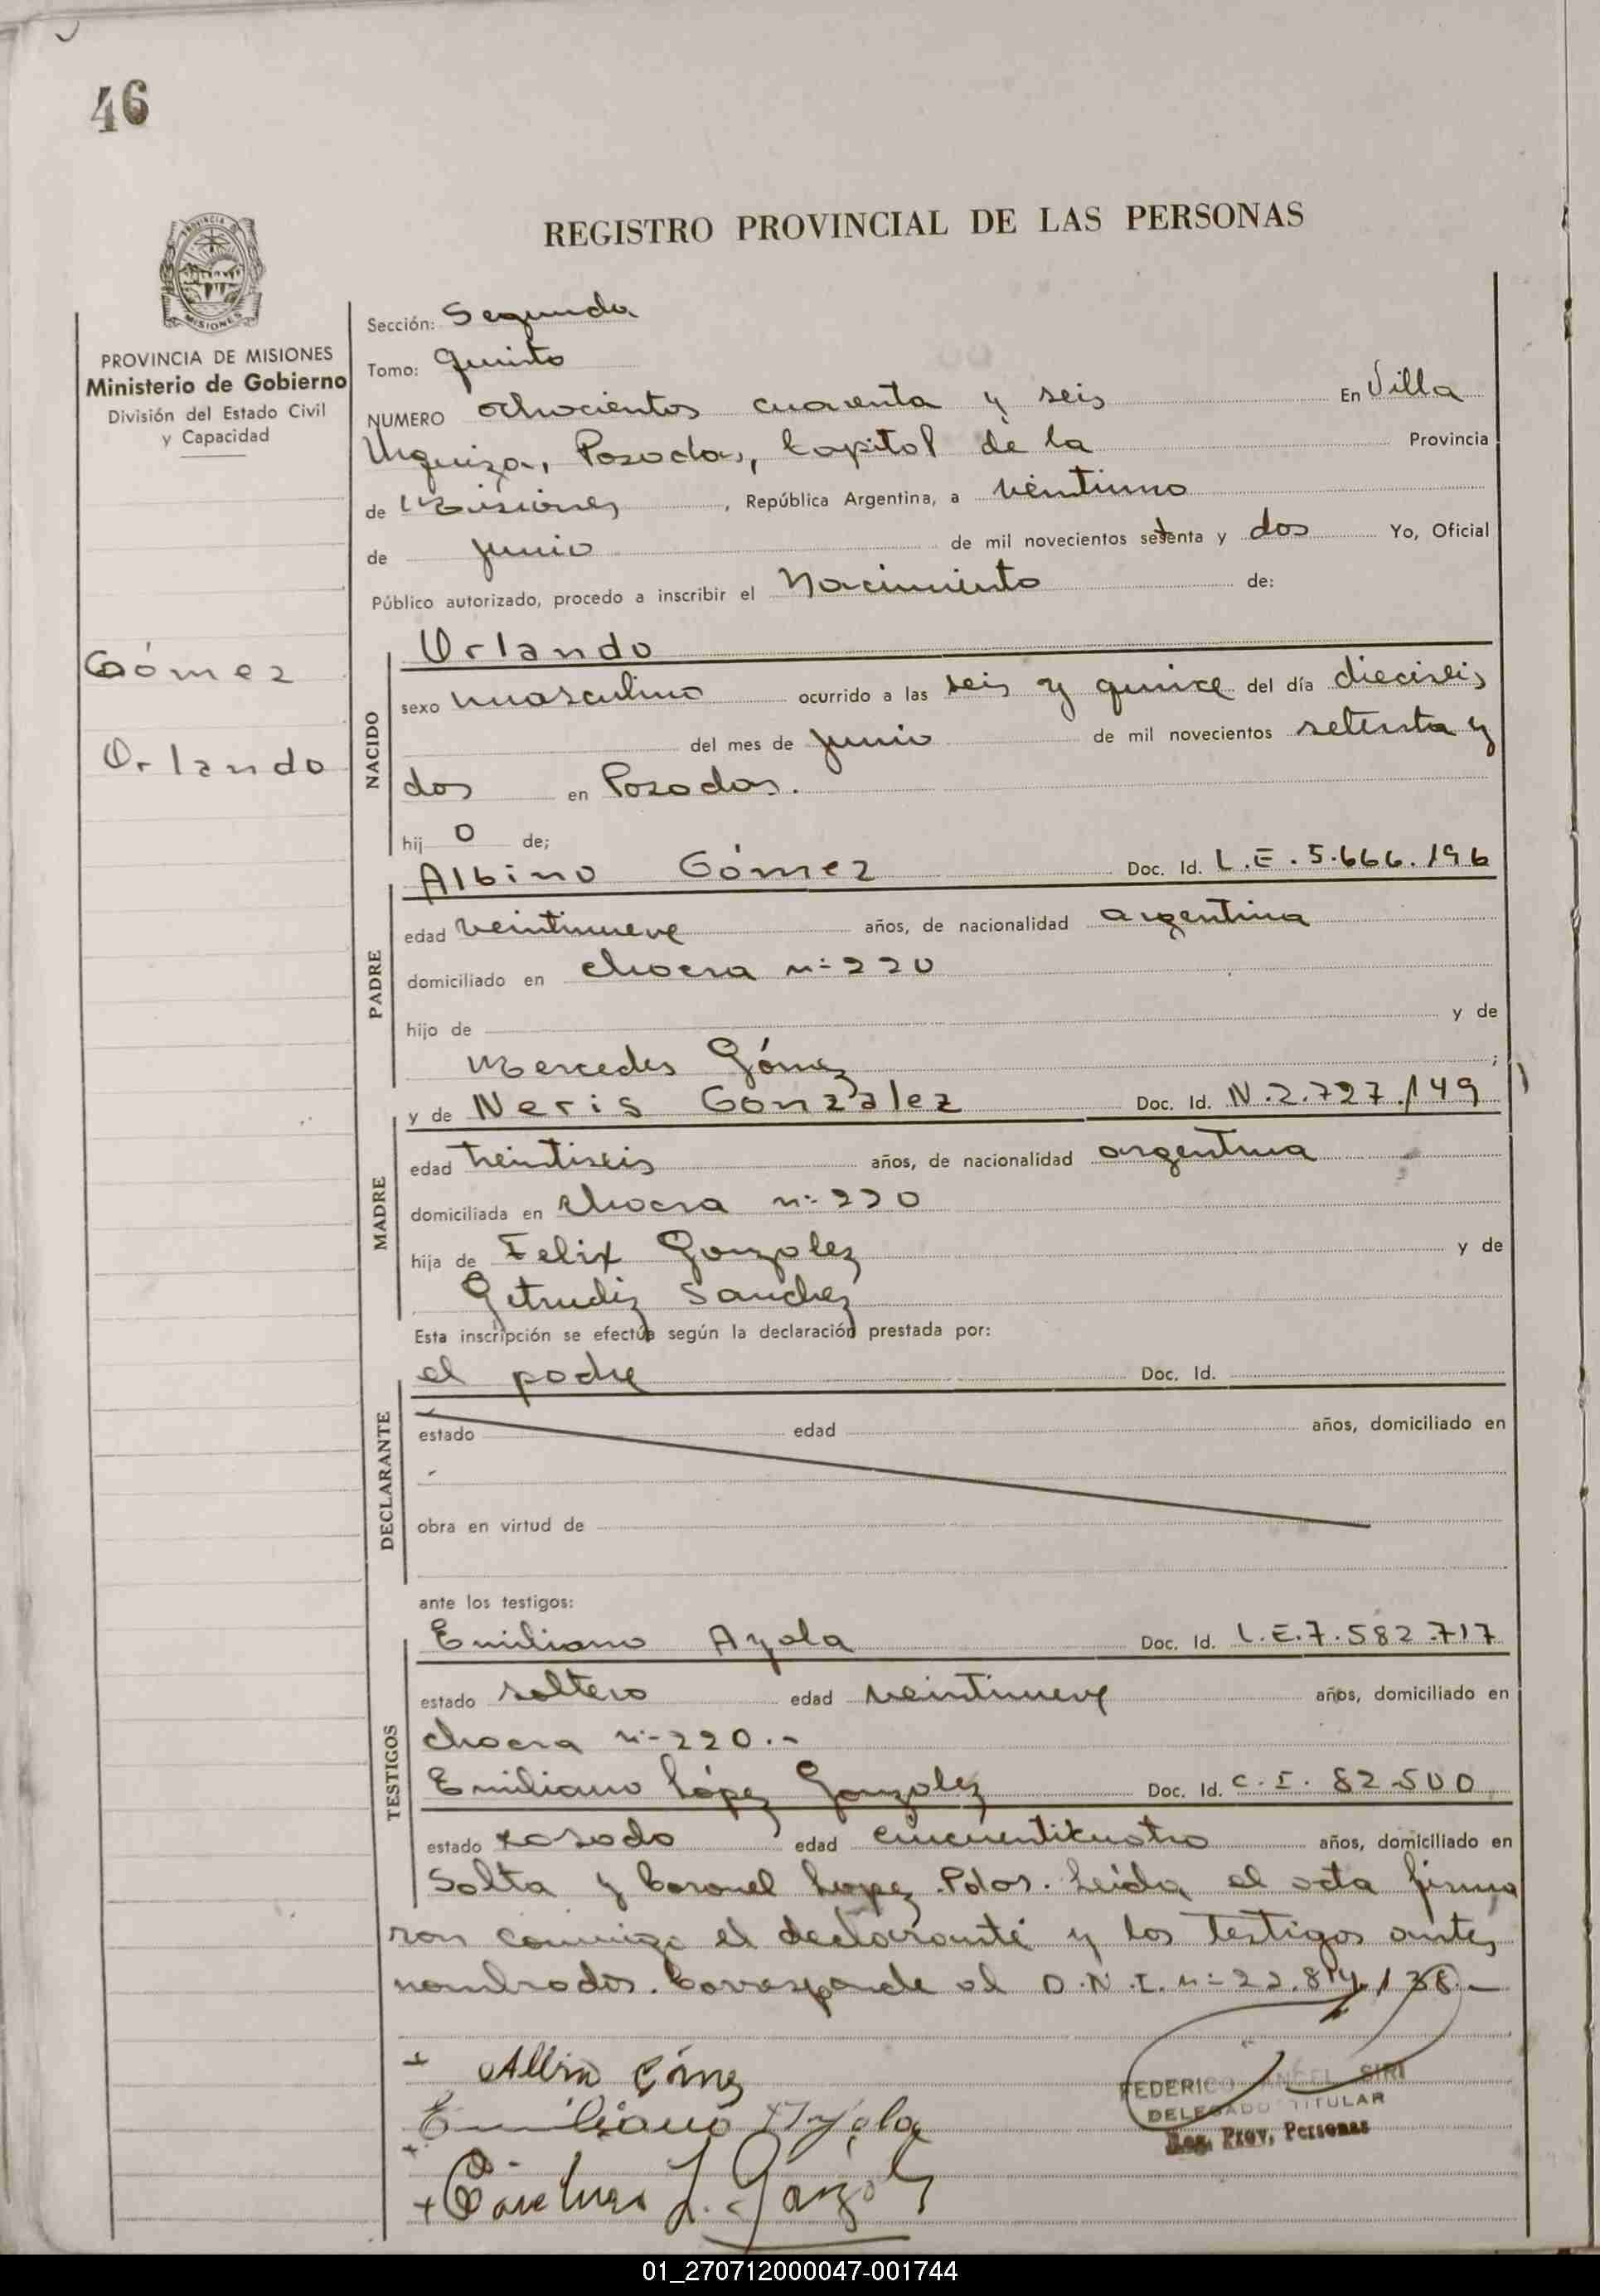 46
REGISTRO PROVINCIAL DE LAS PERSONAS
PROVINCIA
MISIONES
PROVINCIA DE MISIONES
Ministerio de Gobierno
División del Estado Civil
y Capacidad
Gómez
Orlando
Sección: Segunda
Tomo: Quinto
NUMERO ochocientos cuarenta y seis En Villa
Urquiza, Posadas, Capital de la Provincia
de Misiones, República Argentina, a veintiuno
de junio de mil novecientos setenta y dos Yo, Oficial
Público autorizado, procedo a inscribir el Nacimiento de:
NACIDO
Orlando
sexo masculino ocurrido a las seis y quince del día dieciseis
del mes de junio de mil novecientos setenta y
dos en Posadas.
hijo de;
PADRE
Albino Gómez Doc. Id. L.E. 5.666.196
edad veintinueve años, de nacionalidad argentina
domiciliado en chacra n: 220
hijo de y de
Mercedes Gómez;
MADRE
y de Neris González Doc. Id. N.2.727.149
edad treintiseis años, de nacionalidad argentina
domiciliada en chacra n: 220
hija de Felix Gonzalez y de
Getrudiz Sanchez
Esta inscripción se efectúa según la declaración prestada por:
DECLARANTE
el padre Doc. Id.
estado edad años, domiciliado en
obra en virtud de
ante los testigos:
TESTIGOS
Emiliano Ayala Doc. Id. L.E.7.582.717
estado soltero edad veintinueve años, domiciliado en
chacra n:-220.-
Emiliano López Gonzalez Doc. Id. C.I. 82.500
estado casado edad cincuenticuatro años, domiciliado en
Salta y Coronel Lopez Pdas. Leída el acta firma
ron conmigo el declarante y los testigos antes
nombrados. Corresponde al D.N.I. n:-22.814.138.-
Albino Gómez
Emiliano Ayala
L. Gonzalez
FEDERICO ANGEL SIRI
DELEGADO TITULAR
Reg. Prov. Personas
01_270712000047-001744